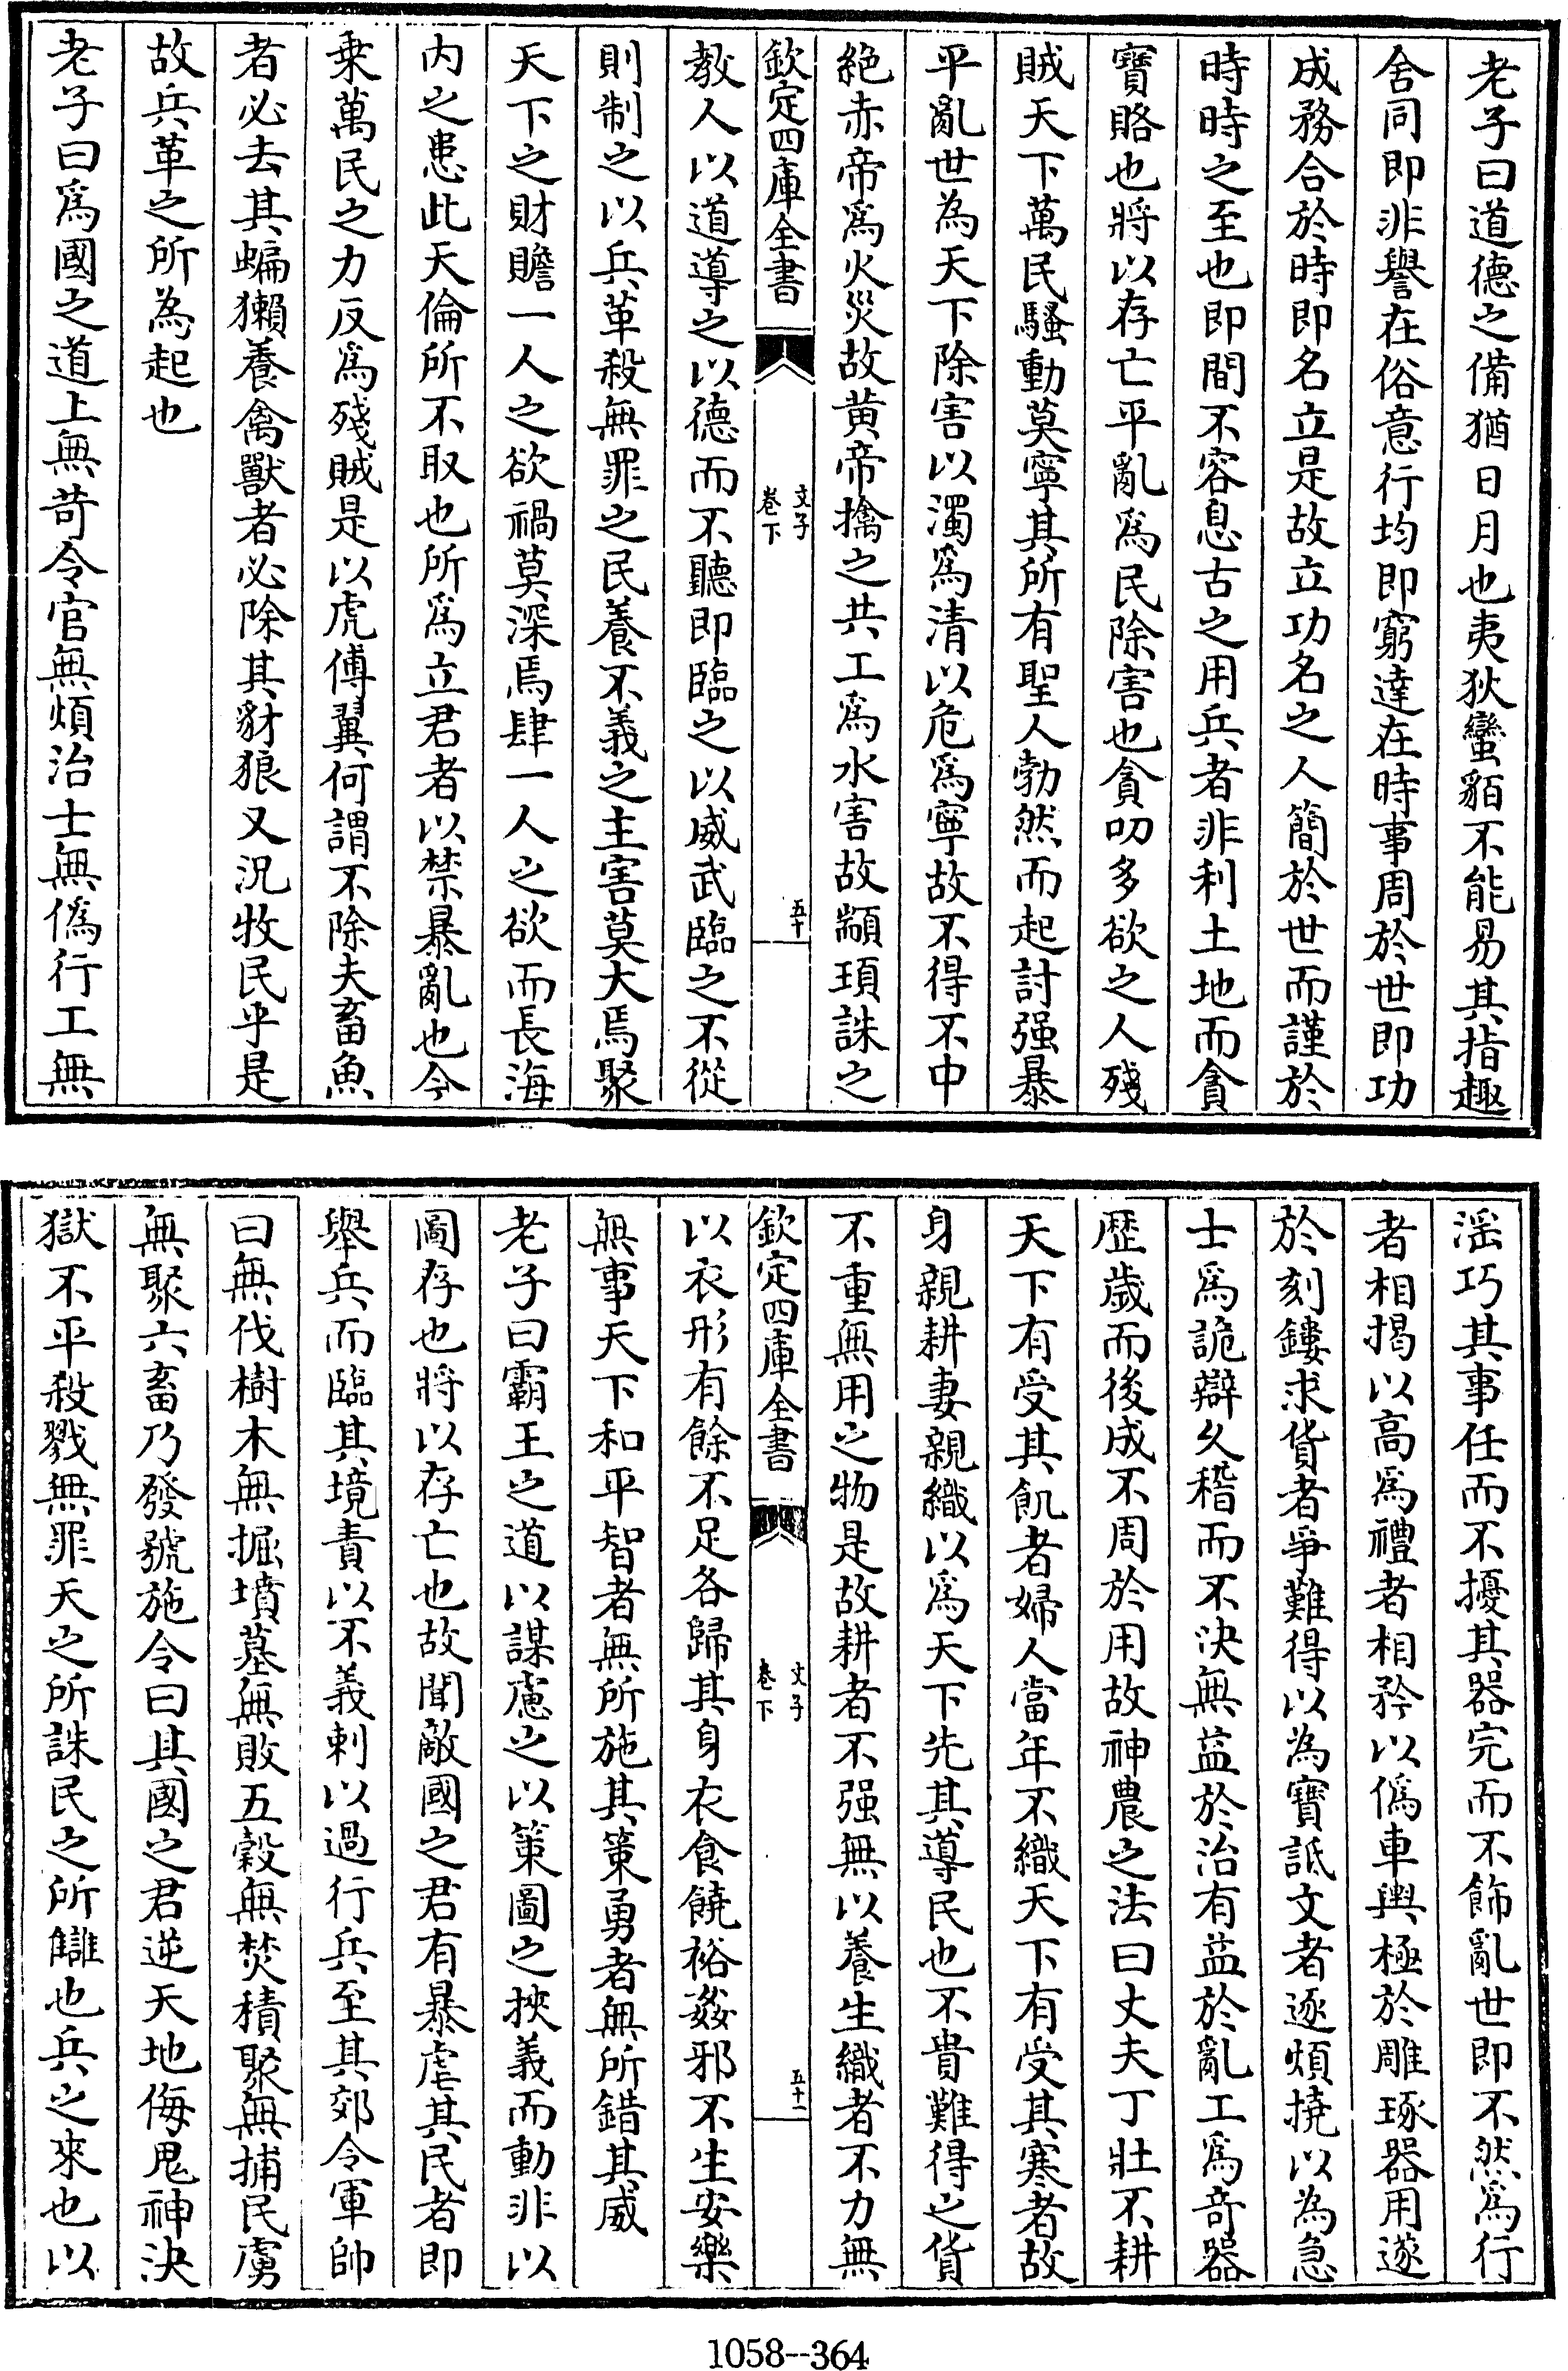 老子曰道德之備猶日月也夷狄蠻貊不能易其指趣
舍同即非譽在俗意行均即窮達在時事周於世即功
成務合於時即名立是故立功名之人簡於世而謹於
時時之至也即間不容息古之用兵者非利土地而貪
寶賂也將以存亡平亂爲民除害也貪叨多欲之人殘
賊天下萬民騷動莫寧其所有聖人勃然而起討强暴
平亂世為天下除害以濁爲清以危爲寧故不得不中
絶赤帝爲火災故黄帝擒之共工爲水害故顓頊誅之
欽定四庫全書
文子
卷下
五十
教人以道導之以德而不聽即臨之以威武臨之不從
則制之以兵革殺無罪之民養不義之主害莫大焉聚
天下之財贍一人之欲禍莫深焉肆一人之欲而長海
内之患此天倫所不取也所爲立君者以禁暴亂也今
乘萬民之力反爲殘賊是以虎傅翼何謂不除夫畜魚
者必去其蝙獺養禽獸者必除其豺狼又況牧民乎是
故兵革之所為起也
老子曰爲國之道上無苛令官無煩治士無僞行工無
滛巧其事任而不擾其器完而不飾亂世即不然爲行
者相揭以高爲禮者相矜以僞車輿極於雕琢器用遂
於刻鏤求貨者爭難得以為寶詆文者逐煩撓以為急
士爲詭辯久稽而不決無益於治有益於亂工爲竒器
歴歲而後成不周於用故神農之法曰丈夫丁壯不耕
天下有受其飢者婦人當年不織天下有受其寒者故
身親耕妻親織以爲天下先其導民也不貴難得之貨
不重無用之物是故耕者不强無以養生織者不力無
欽定四庫全書
文子
卷下
五十一
以衣形有餘不足各歸其身衣食饒裕姦邪不生安樂
無事天下和平智者無所施其策勇者無所錯其威
老子曰霸王之道以謀慮之以策圖之挾義而動非以
圖存也將以存亡也故聞敵國之君有暴虐其民者即
舉兵而臨其境責以不義刺以過行兵至其郊令軍帥
曰無伐樹木無掘墳墓無敗五穀無焚積聚無捕民虜
無聚六畜乃發號施令曰其國之君逆天地侮鬼神決
獄不平殺戮無罪天之所誅民之所讎也兵之來也以
1058--364